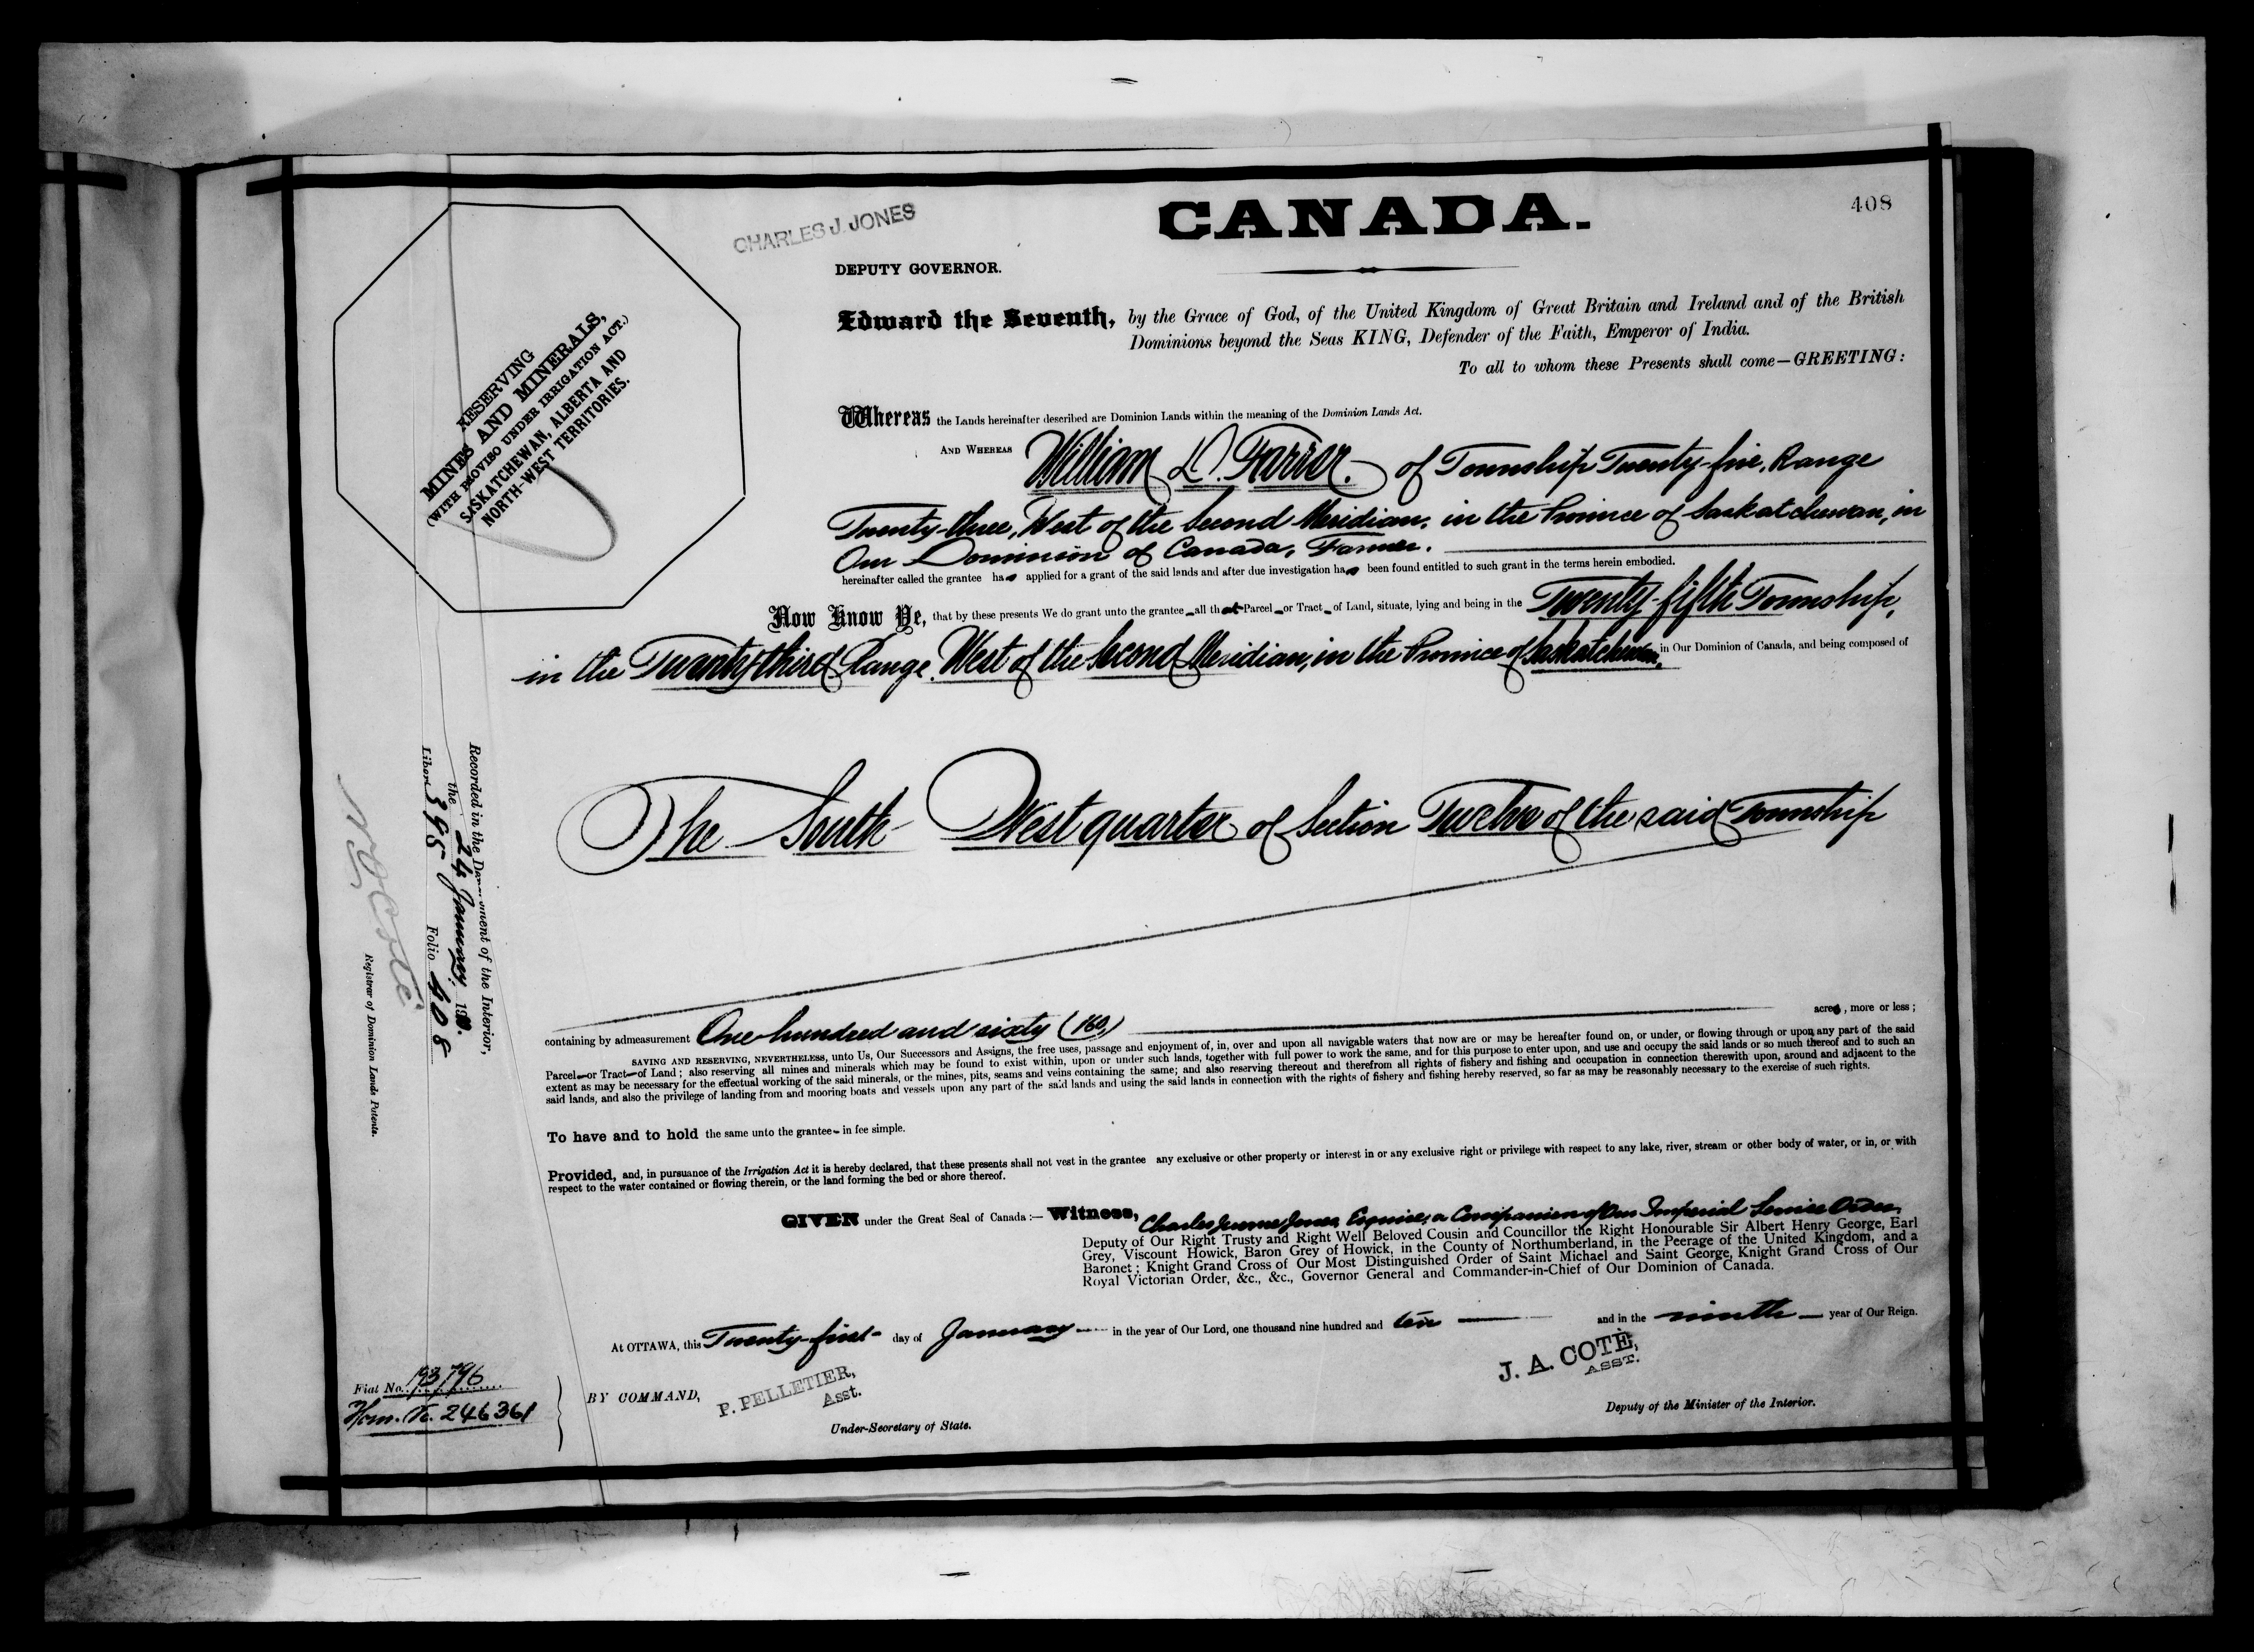 408
CANADA.
CHARLES J. JONES
DEPUTY GOVERNOR.
RESERVING
MINES AND MINERALS,
(WITH PROVISO UNDER IRRIGATION ACT.)
SASKATCHEWAN, ALBERTA AND
NORTH-WEST TERRITORIES.
Edward the Seventh, by the Grace of God, of the United Kingdom of Great Britain and Ireland and of the British
Dominions beyond the Seas KING, Defender of the Faith, Emperor of India.
To all to whom these Presents shall come—GREETING:
Whereas the Lands hereinafter described are Dominion Lands within the meaning of the Dominion Lands Act.
AND WHEREAS William D. Farrer. of Township Twenty-five, Range
Twenty-three, West of the Second Meridian, in the Province of Saskatchewan, in
Our Dominion of Canada, Farmer.
hereinafter called the grantee has applied for a grant of the said lands and after due investigation has been found entitled to such grant in the terms herein embodied.
Now Know Ye, that by these presents We do grant unto the grantee all that Parcel or Tract of Land, situate, lying and being in the Twenty-fifth Township,
in the Twenty-third Range, West of the Second Meridian, in the Province of Saskatchewan, in Our Dominion of Canada, and being composed of
The South West quarter of Section Twelve of the said Township
containing by admeasurement One hundred and sixty (160) acres, more or less;
SAVING AND RESERVING, NEVERTHELESS, unto Us, Our Successors and Assigns, the free uses, passage and enjoyment of, in, over and upon all navigable waters that now are or may be hereafter found on, or under, or flowing through or upon any part of the said
Parcel or Tract of Land; also reserving all mines and minerals which may be found to exist within, upon or under such lands, together with full power to work the same, and for this purpose to enter upon, and use and occupy the said lands or so much thereof and to such an
extent as may be necessary for the effectual working of the said minerals, or the mines, pits, seams and veins containing the same; and also reserving thereout and therefrom all rights of fishery and fishing and occupation in connection therewith upon, around and adjacent to the
said lands, and also the privilege of landing from and mooring boats and vessels upon any part of the said lands and using the said lands in connection with the rights of fishery and fishing hereby reserved, so far as may be reasonably necessary to the exercise of such rights.
To have and to hold the same unto the grantee in fee simple.
Provided, and, in pursuance of the Irrigation Act it is hereby declared, that these presents shall not vest in the grantee any exclusive or other property or interest in or any exclusive right or privilege with respect to any lake, river, stream or other body of water, or in, or with
respect to the water contained or flowing therein, or the land forming the bed or shore thereof.
GIVEN under the Great Seal of Canada:— Witness, Charles Jerome Jones, Esquire, a Companion of Our Imperial Service Order,
Deputy of Our Right Trusty and Right Well Beloved Cousin and Councillor the Right Honourable Sir Albert Henry George, Earl
Grey, Viscount Howick, Baron Grey of Howick, in the County of Northumberland, in the Peerage of the United Kingdom, and a
Baronet; Knight Grand Cross of Our Most Distinguished Order of Saint Michael and Saint George, Knight Grand Cross of Our
Royal Victorian Order, &c., &c., Governor General and Commander-in-Chief of Our Dominion of Canada.
At OTTAWA, this Twenty-first day of January in the year of Our Lord, one thousand nine hundred and ten and in the ninth year of Our Reign.
BY COMMAND,
P. PELLETIER,
Asst.
Under-Secretary of State.
J. A. COTÉ,
ASST.
Deputy of the Minister of the Interior.
Recorded in the Department of the Interior,
the 24 January, 1910.
Liber 395 Folio 408
N O Coté
Registrar of Dominion Lands Patents.
Fiat No. 193796
Hom. No. 246361